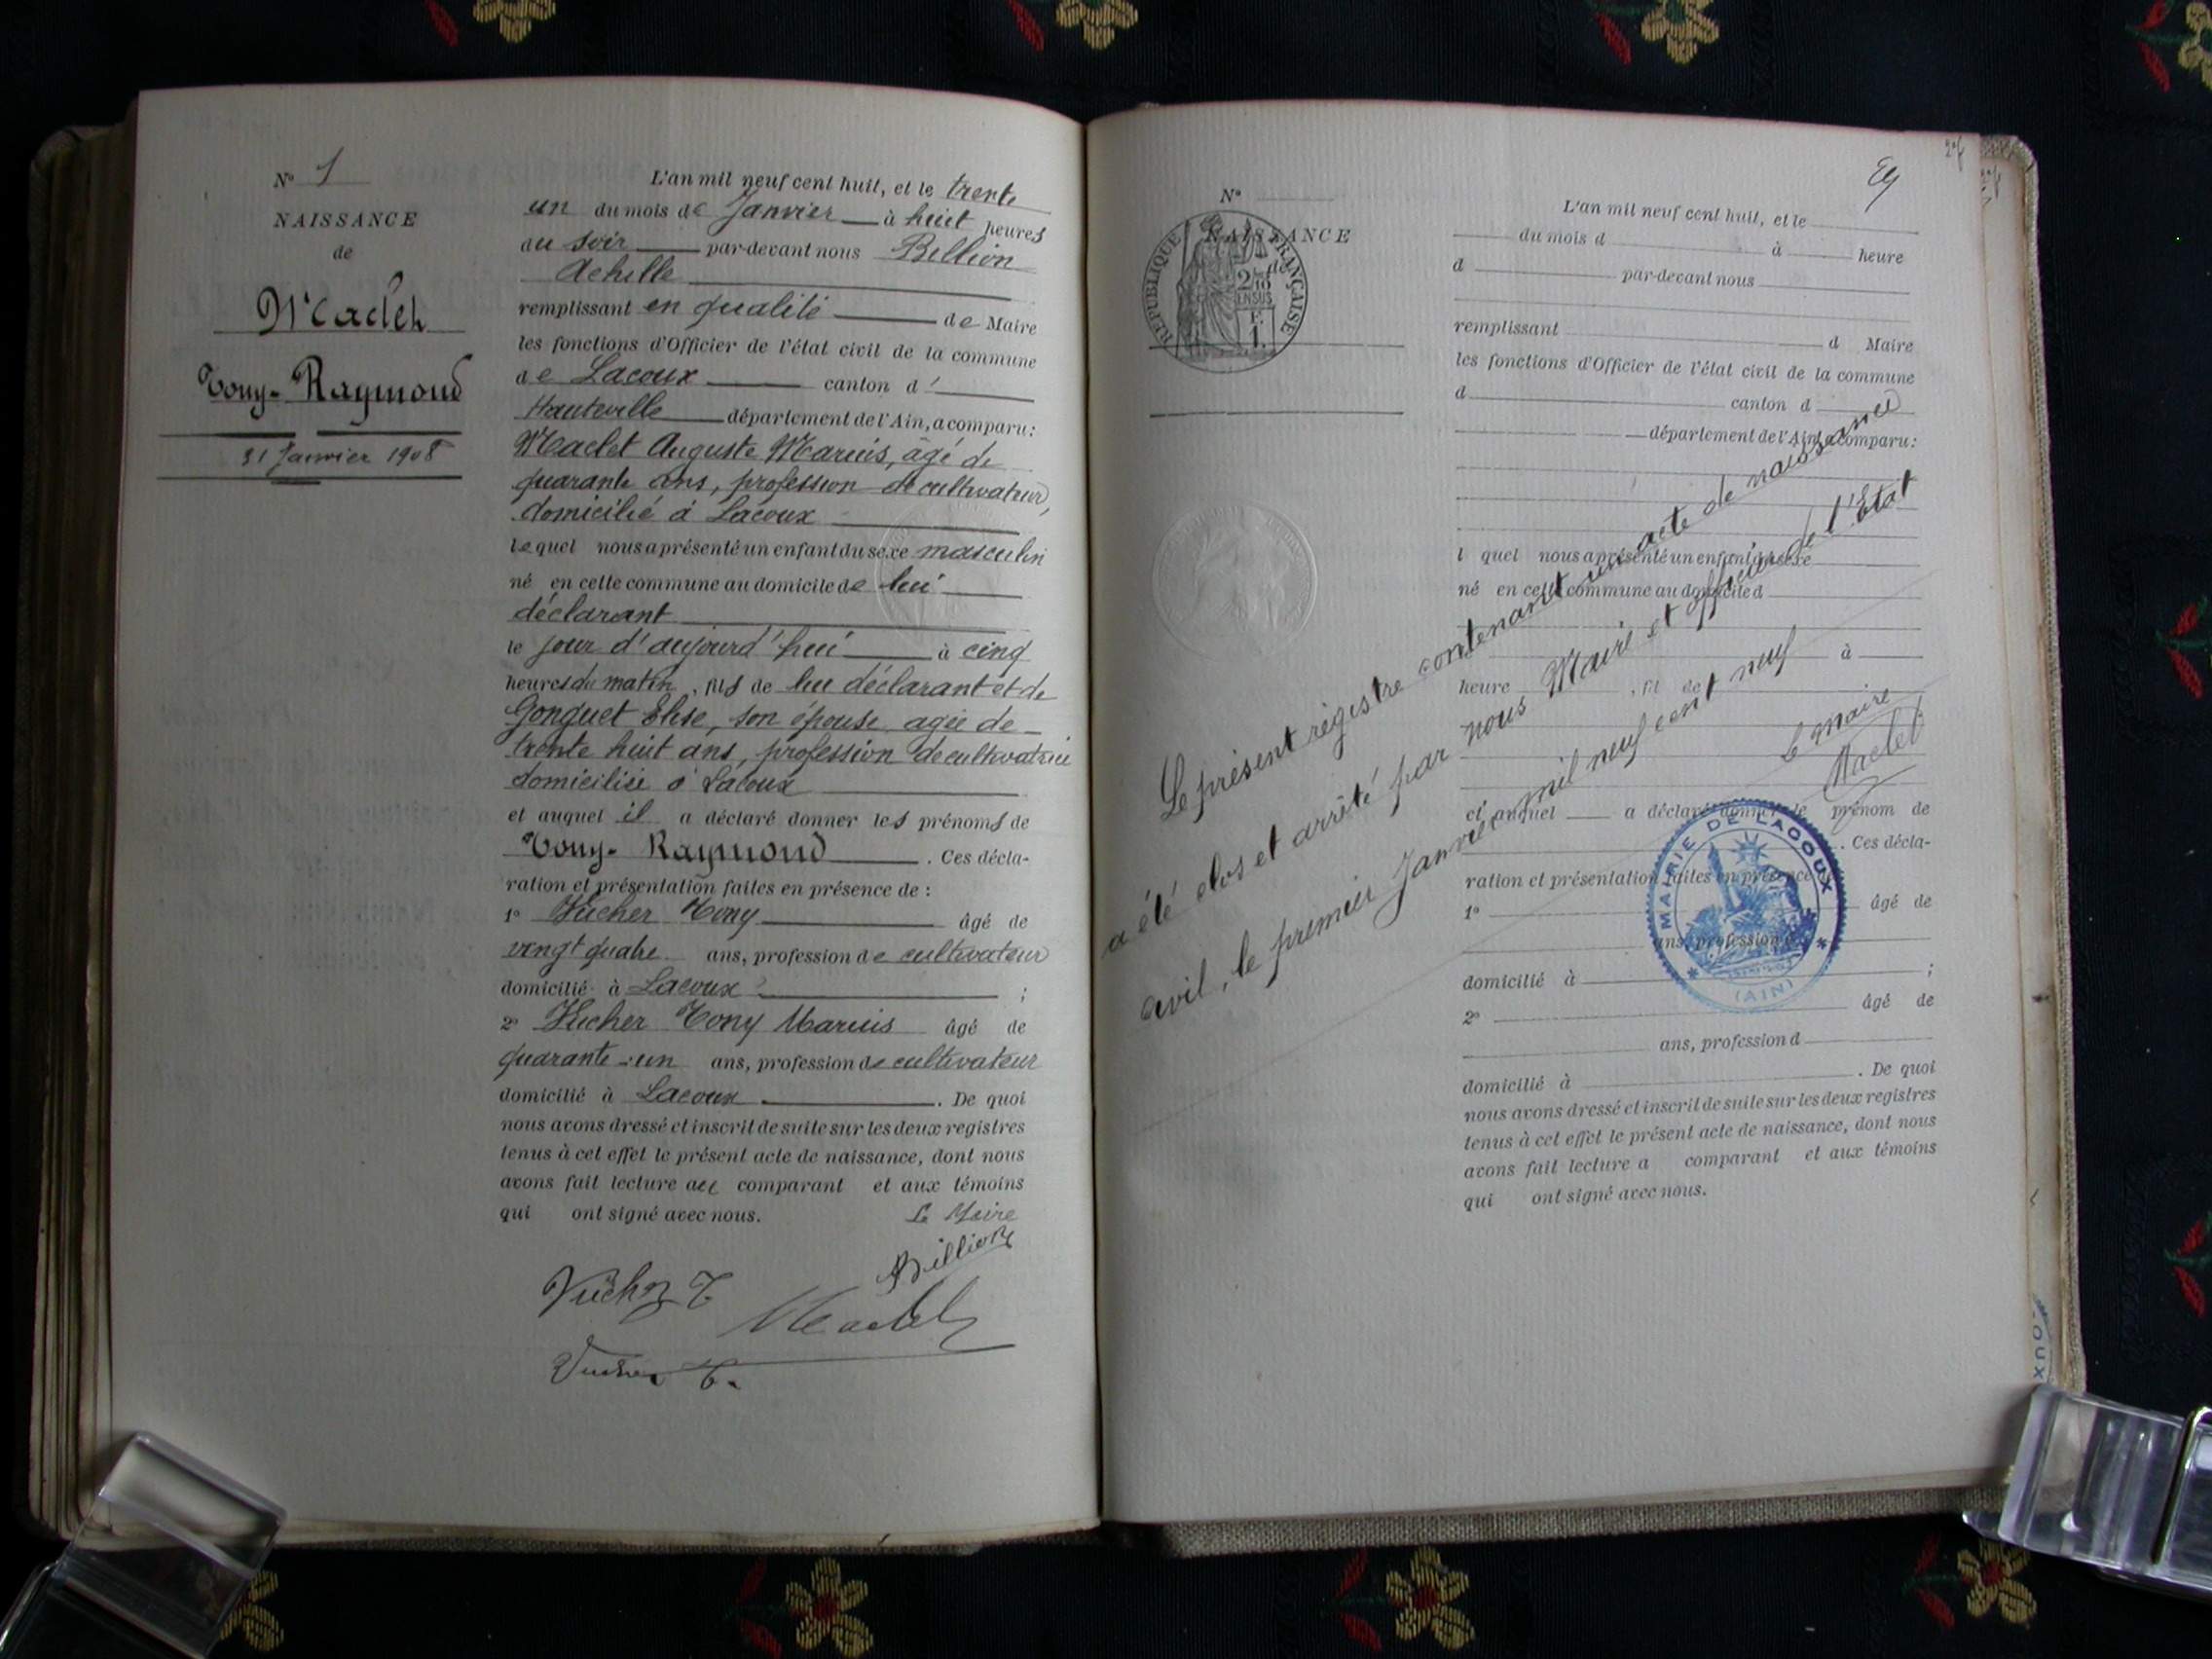 N° 1
NAISSANCE
de
Maclet
Tony-Raymond
31 Janvier 1908
L'an mil neuf cent huit, et le trente
un du mois de Janvier à huit heures
du soir par-devant nous Billion
Achille
remplissant en qualité de Maire
les fonctions d'Officier de l'état civil de la commune
de Lacoux canton d'
Hauteville département de l'Ain, a comparu:
Maclet Auguste Marius, âgé de
quarante ans, profession de cultivateur,
domicilié à Lacoux
lequel nous a présenté un enfant du sexe masculin
né en cette commune au domicile de lui
déclarant
le jour d'aujourd'hui à cinq
heures du matin, fils de lui déclarant et de
Gonguet Elise, son épouse agée de
trente huit ans, profession de cultivatrice
domiciliée à Lacoux
et auquel il a déclaré donner les prénoms de
Tony-Raymond. Ces décla-
ration et présentation faites en présence de :
1° Vucher Tony âgé de
vingt quatre ans, profession de cultivateur
domicilié à Lacoux ;
2° Vucher Tony Marius âgé de
quarante-un ans, profession de cultivateur
domicilié à Lacoux. De quoi
nous avons dressé et inscrit de suite sur les deux registres
tenus à cet effet le présent acte de naissance, dont nous
avons fait lecture au comparant et aux témoins
qui ont signé avec nous.
Le Maire
Billion
Vucher T
Maclet
Vucher T.
N°
NAISSANCE
de
RÉPUBLIQUE FRANÇAISE
2/10
EN SUS
F.
1.
27
L'an mil neuf cent huit, et le
du mois d à heure
d par-devant nous
remplissant d Maire
les fonctions d'Officier de l'état civil de la commune
d canton d
département de l'Ain, a comparu:
l quel nous a présenté un enfant du sexe
né en cette commune au domicile d
à
heure , fil de
et auquel a déclaré donner le prénom de
. Ces décla-
ration et présentation faites en présence de
1° âgé de
ans, profession d
domicilié à ;
2° âgé de
ans, profession d
domicilié à . De quoi
nous avons dressé et inscrit de suite sur les deux registres
tenus à cet effet le présent acte de naissance, dont nous
avons fait lecture a comparant et aux témoins
qui ont signé avec nous.
Le présent régistre contenant un acte de naissance
a été clos et arrêté par nous Maire et officier de l'Etat
civil, le premier Janvier mil neuf cent neuf
Le maire
Maclet
MAIRIE DE LACOUX
(AIN)
OUX